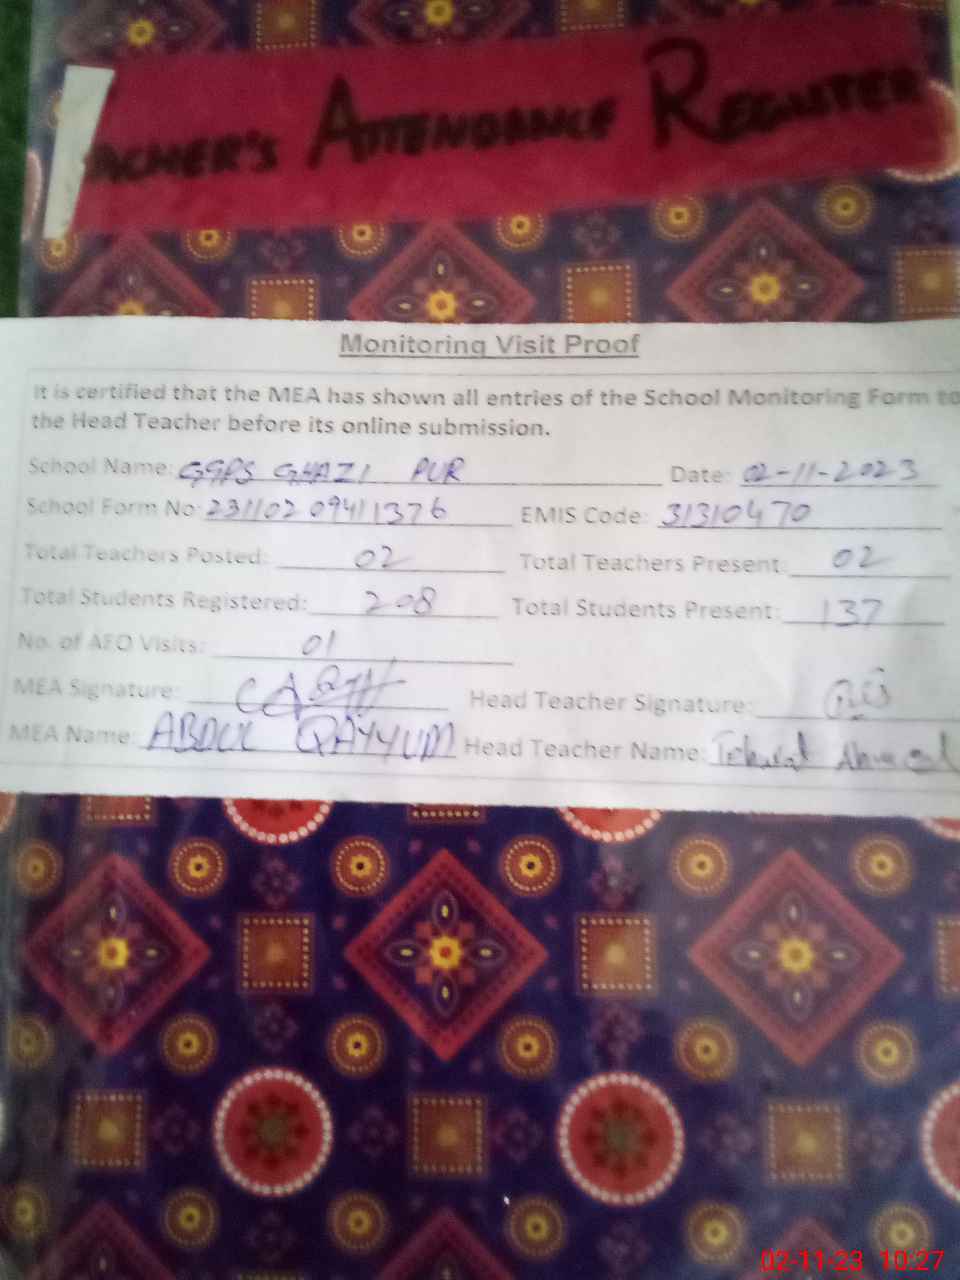 ACHER'S ATTENDANCE REGISTER
Monitoring Visit Proof
It is certified that the MEA has shown all entries of the School Monitoring Form to
the Head Teacher before its online submission.
School Name: GGPS GHAZI PUR Date: 02-11-2023
School Form No 231102 0941 1376 EMIS Code: 31310470
Total Teachers Posted: 02 Total Teachers Present: 02
Total Students Registered: 208 Total Students Present: 137
No. of AEO Visits: 01
MEA Signature: Head Teacher Signature:
MEA Name: ABDUL QAYYUM Head Teacher Name: Ahmed
02-11-23 10:27